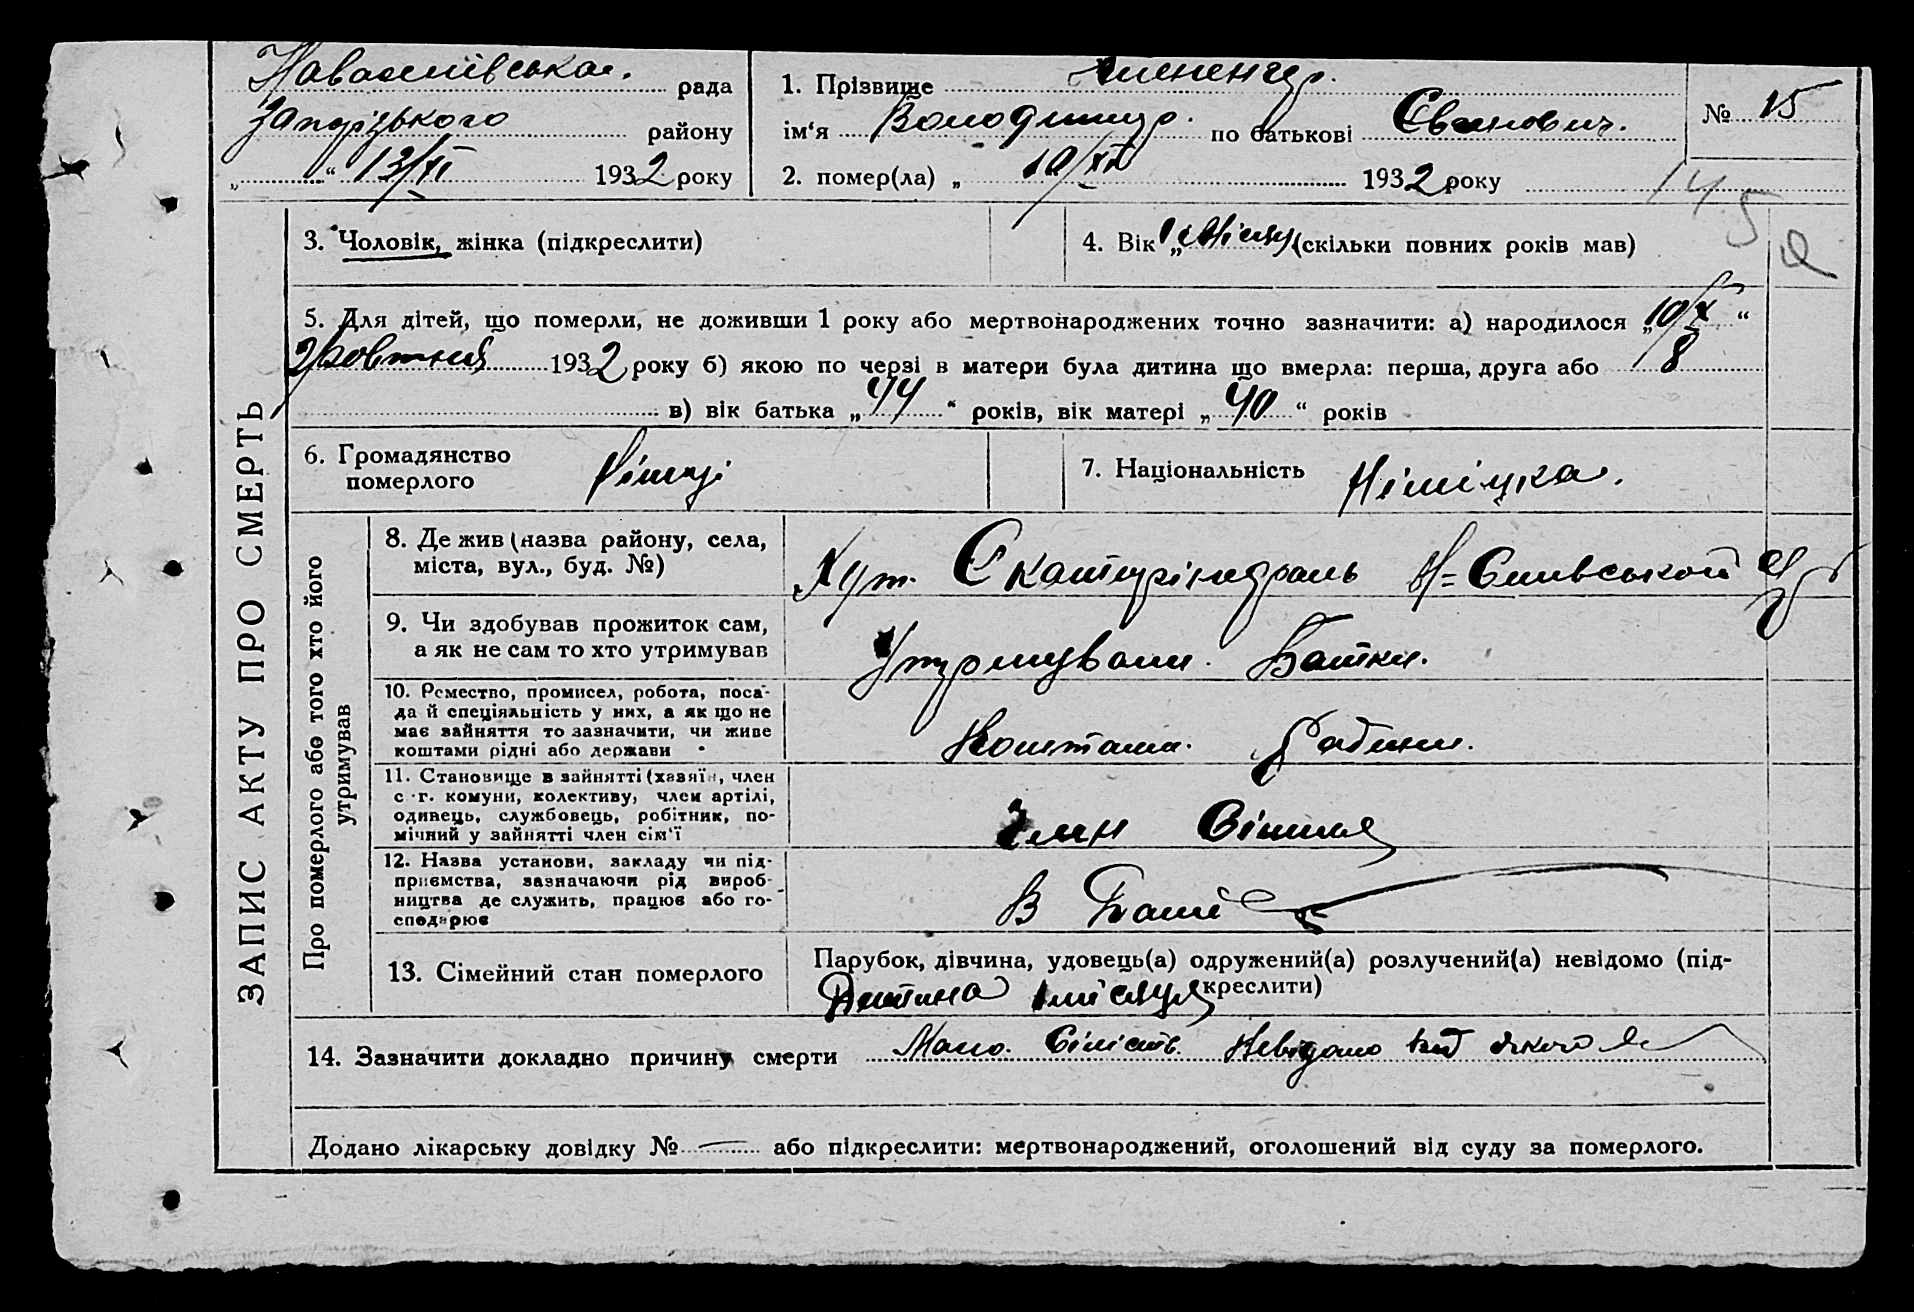 рада
Запорізького району
„ “ 13/XI 1932 року
1. Прізвище
ім‘я Володимир. по батькові Єванович.
2. помер(ла) „ 10/XI 1932 року
№ 15
ЗАПИС АКТУ ПРО СМЕРТЬ
3. Чоловік, жінка (підкреслити)
4. Вік „ 1 місяц (скільки повних років мав)
5. Для дітей, що померли, не доживши 1 року або мертвонароджених точно зазначити: а) народилося „ 10/X “
жовтня 1932 року б) якою по черзі в матери була дитина що вмерла: перша, друга або 8
в) вік батька „ 44 “ років, вік матері „ 40 “ років
6. Громадянство
померлого
Німці
7. Національність Німіцка.
Про померлого або того хто його
утримував
8. Де жив (назва району, села,
міста, вул., буд. №)
Хут.
9. Чи здобував прожиток сам,
а як не сам то хто утримував
Утримували. Батки.
10. Ремество, промисел, робота, поса-
да й спеціяльність у них, а як що не
має зайняття то зазначити, чи живе
коштами рідні або держави
Коштами.
11. Становище в зайнятті (хазяїн, член
с.-г. комуни, колективу, член артілі,
одинець, службовець, робітник, по-
мічний у зайнятті член сім‘ї
Член
12. Назва установи, закладу чи під-
приємства, зазначаючи рід вироб-
ництва де служить, працює або го-
сподарює
В
13. Сімейний стан померлого
Парубок, дівчина, удовець(а) одружений(а) розлучений(а) невідомо (під-
креслити)
Дитина 1 місяця
14. Зазначити докладно причину смерти
Невідомо
Додано лікарську довідку № — або підкреслити: мертвонароджений, оголошений від суду за померлого.